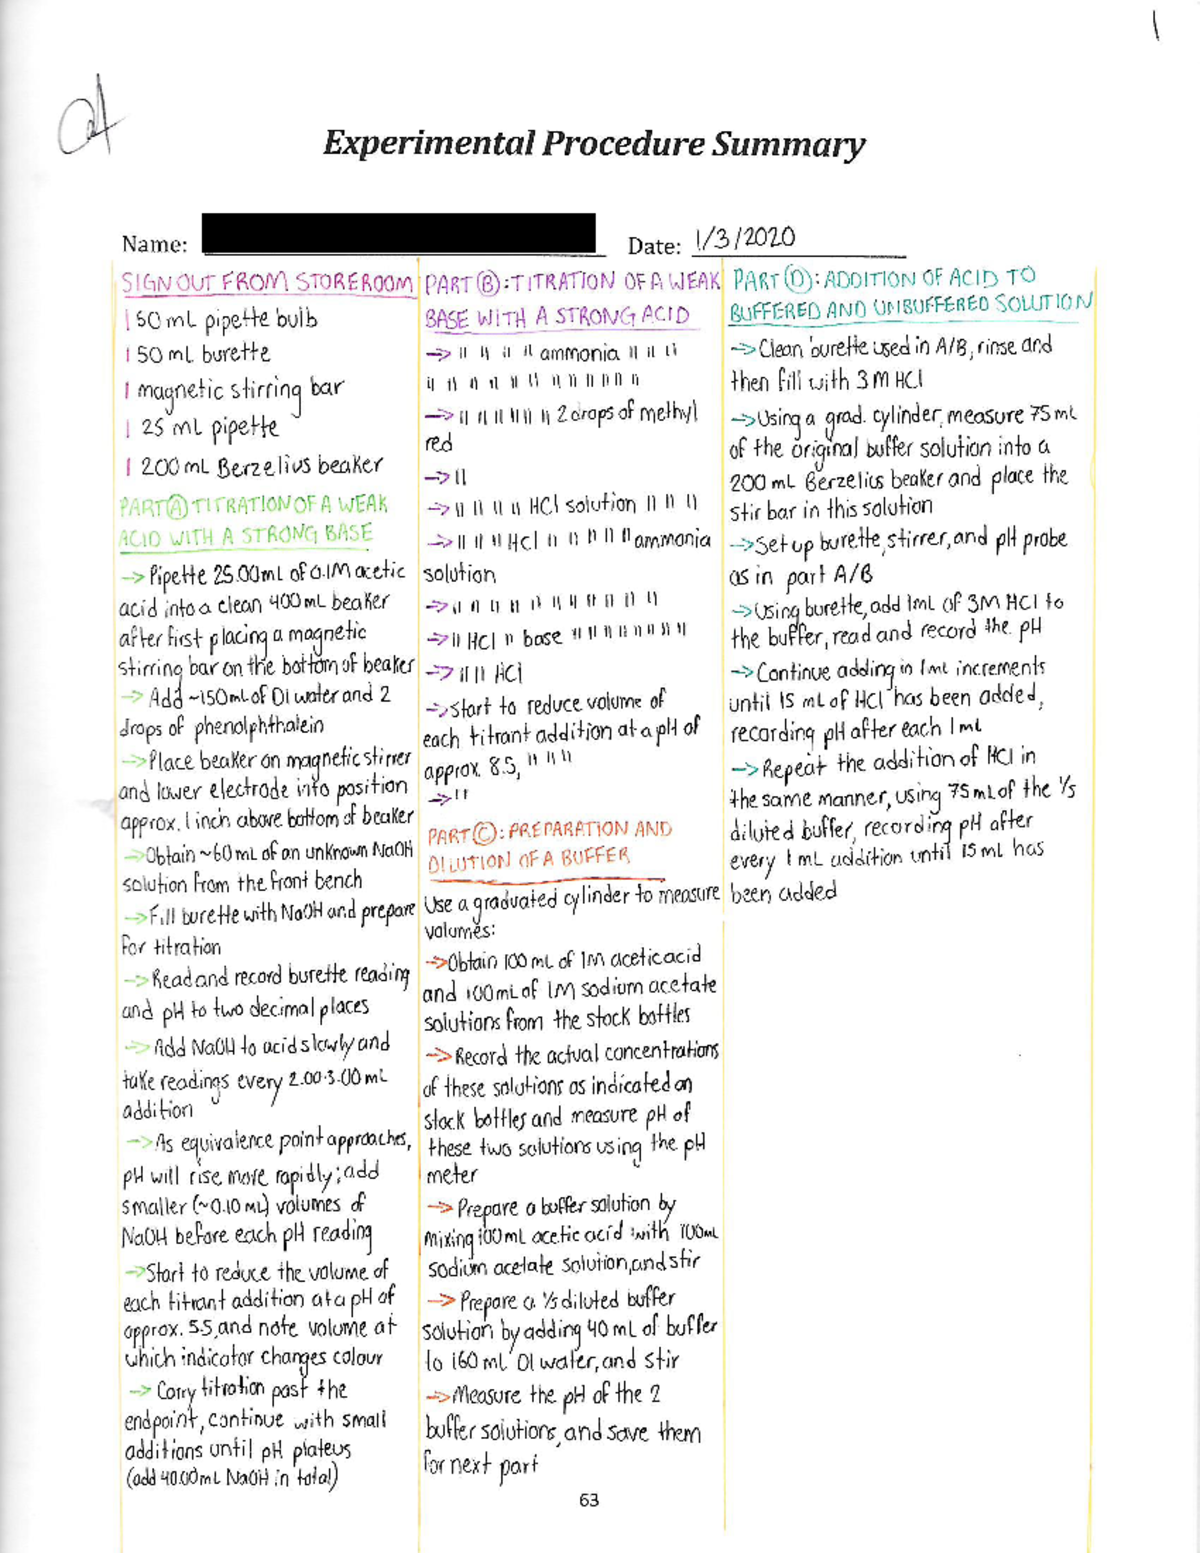 1
Experimental Procedure Summary
Name:
Date: 1/3/2020
SIGN OUT FROM STOREROOM
1 50 mL pipette bulb
1 50 mL burette
1 magnetic stirring bar
1 25 mL pipette
1 200 mL Berzelius beaker
PART Ⓐ TITRATION OF A WEAK
ACID WITH A STRONG BASE
-> Pipette 25.00mL of 0.1M acetic
acid into a clean 400mL beaker
after first placing a magnetic
stirring bar on the bottom of beaker
-> Add ~150mL of DI water and 2
drops of phenolphthalein
-> Place beaker on magnetic stirrer
and lower electrode into position
approx. 1 inch above bottom of beaker
-> Obtain ~60mL of an unknown NaOH
solution from the front bench
-> Fill burette with NaOH and prepare
for titration
-> Read and record burette reading
and pH to two decimal places
-> Add NaOH to acid slowly and
take readings every 2.00-3.00 mL
addition
-> As equivalence point approaches,
pH will rise more rapidly; add
smaller (~0.10 mL) volumes of
NaOH before each pH reading
-> Start to reduce the volume of
each titrant addition at a pH of
approx. 5.5, and note volume at
which indicator changes colour
-> Carry titration past the
endpoint, continue with small
additions until pH plateus
(add 40.00mL NaOH in total)
PART Ⓑ: TITRATION OF A WEAK
BASE WITH A STRONG ACID
-> " " " " ammonia " " "
" " " " " " " " " " "
-> " " " " " " 2 drops of methyl
red
-> "
-> " " " " HCl solution " " "
-> " " " HCl " " " " " ammonia
solution
-> " " " " " " " " " " "
-> " HCl " base " " " " " " " "
-> " " " HCl
-> start to reduce volume of
each titrant addition at a pH of
approx. 8.5, " " "
-> "
PART Ⓒ: PREPARATION AND
DILUTION OF A BUFFER
Use a graduated cylinder to measure
volumes:
-> Obtain 100 mL of 1M acetic acid
and 100mL of 1M sodium acetate
solutions from the stock bottles
-> Record the actual concentrations
of these solutions as indicated on
stock bottles and measure pH of
these two solutions using the pH
meter
-> Prepare a buffer solution by
mixing 100mL acetic acid with 100mL
sodium acetate solution, and stir
-> Prepare a 1/5 diluted buffer
solution by adding 40 mL of buffer
to 160 mL DI water, and stir
-> Measure the pH of the 2
buffer solutions, and save them
for next part
PART Ⓓ: ADDITION OF ACID TO
BUFFERED AND UNBUFFERED SOLUTION
-> Clean burette used in A/B, rinse and
then fill with 3M HCl
-> Using a grad. cylinder, measure 75mL
of the original buffer solution into a
200 mL Berzelius beaker and place the
stir bar in this solution
-> Set up burette, stirrer, and pH probe
as in part A/B
-> Using burette, add 1mL of 3M HCl to
the buffer, read and record the pH
-> Continue adding in 1mL increments
until 15 mL of HCl has been added,
recording pH after each 1mL
-> Repeat the addition of HCl in
the same manner, using 75mL of the 1/5
diluted buffer, recording pH after
every 1mL addition until 15mL has
been added
63